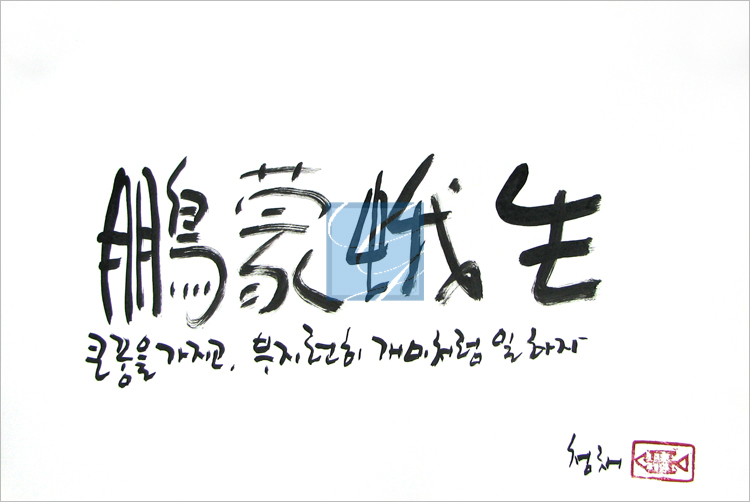 鵬蒙蛾生
큰꿈을 가지고, 부지런히 개미처럼 일하자
청채